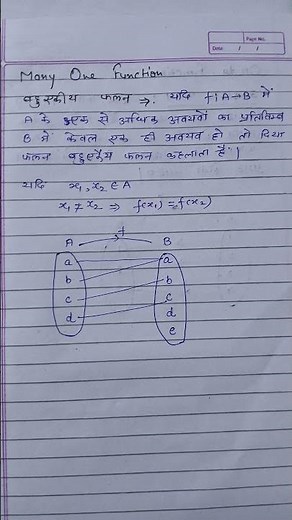 Page No.
Date: / /
Many One Function
बहुएकीय फलन ⇒. यदि f: A→B में
A के एक से अधिक अवयवों का प्रतिबिम्ब
B में केवल एक ही अवयव हो तो दिया
फलन बहुएकैय फलन कहलाता है।
यदि x₁, x₂ ∈ A
x₁ ≠ x₂ ⇒ f(x₁) = f(x₂)
f
A B
a a
b b
c c
d d
e